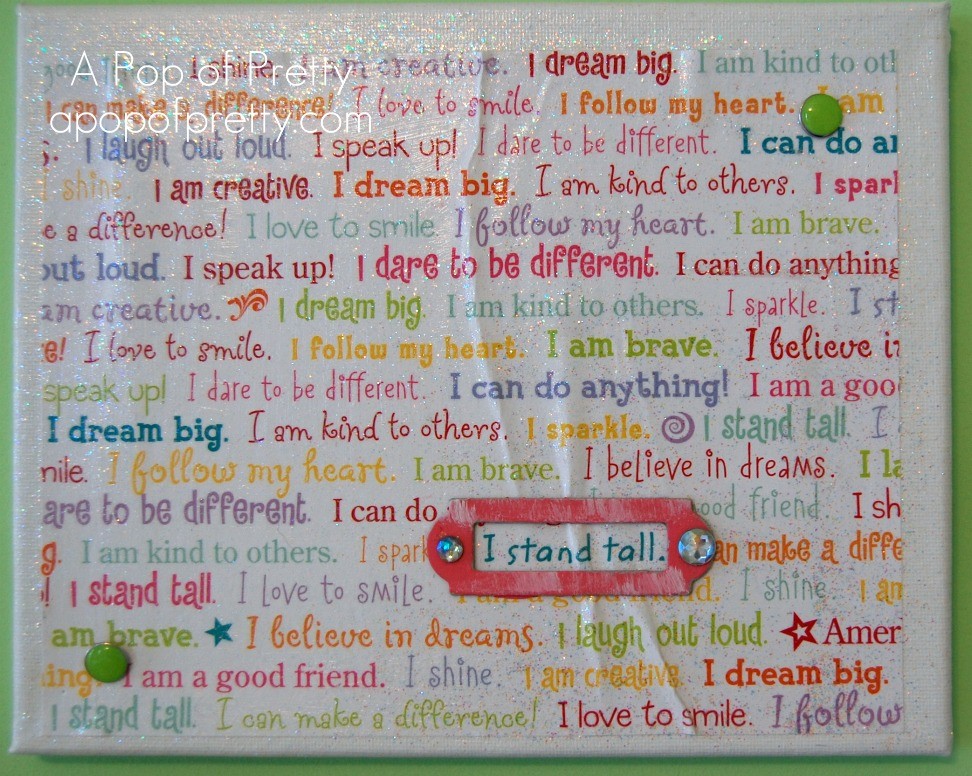 A Pop of Pretty
apopofpretty.com
I shine. I am creative. I dream big. I am kind to oth
I can make a difference! I love to smile. I follow my heart. I am
s. I laugh out loud. I speak up! I dare to be different. I can do an
I shine. I am creative. I dream big. I am kind to others. I spark
e a difference! I love to smile. I follow my heart. I am brave.
out loud. I speak up! I dare to be different. I can do anything
am creative. I dream big. I am kind to others. I sparkle. I st
e! I love to smile. I follow my heart. I am brave. I believe in
speak up! I dare to be different. I can do anything! I am a good
I dream big. I am kind to others. I sparkle. I stand tall. I
mile. I follow my heart. I am brave. I believe in dreams. I la
are to be different. I can do good friend. I sh
g. I am kind to others. I spark I stand tall. an make a diffe
! I stand tall. I love to smile. I am a good friend. I shine. I am
am brave. I believe in dreams. I laugh out loud. Amer
ing. I am a good friend. I shine. I am creative. I dream big.
I stand tall. I can make a difference! I love to smile. I follow